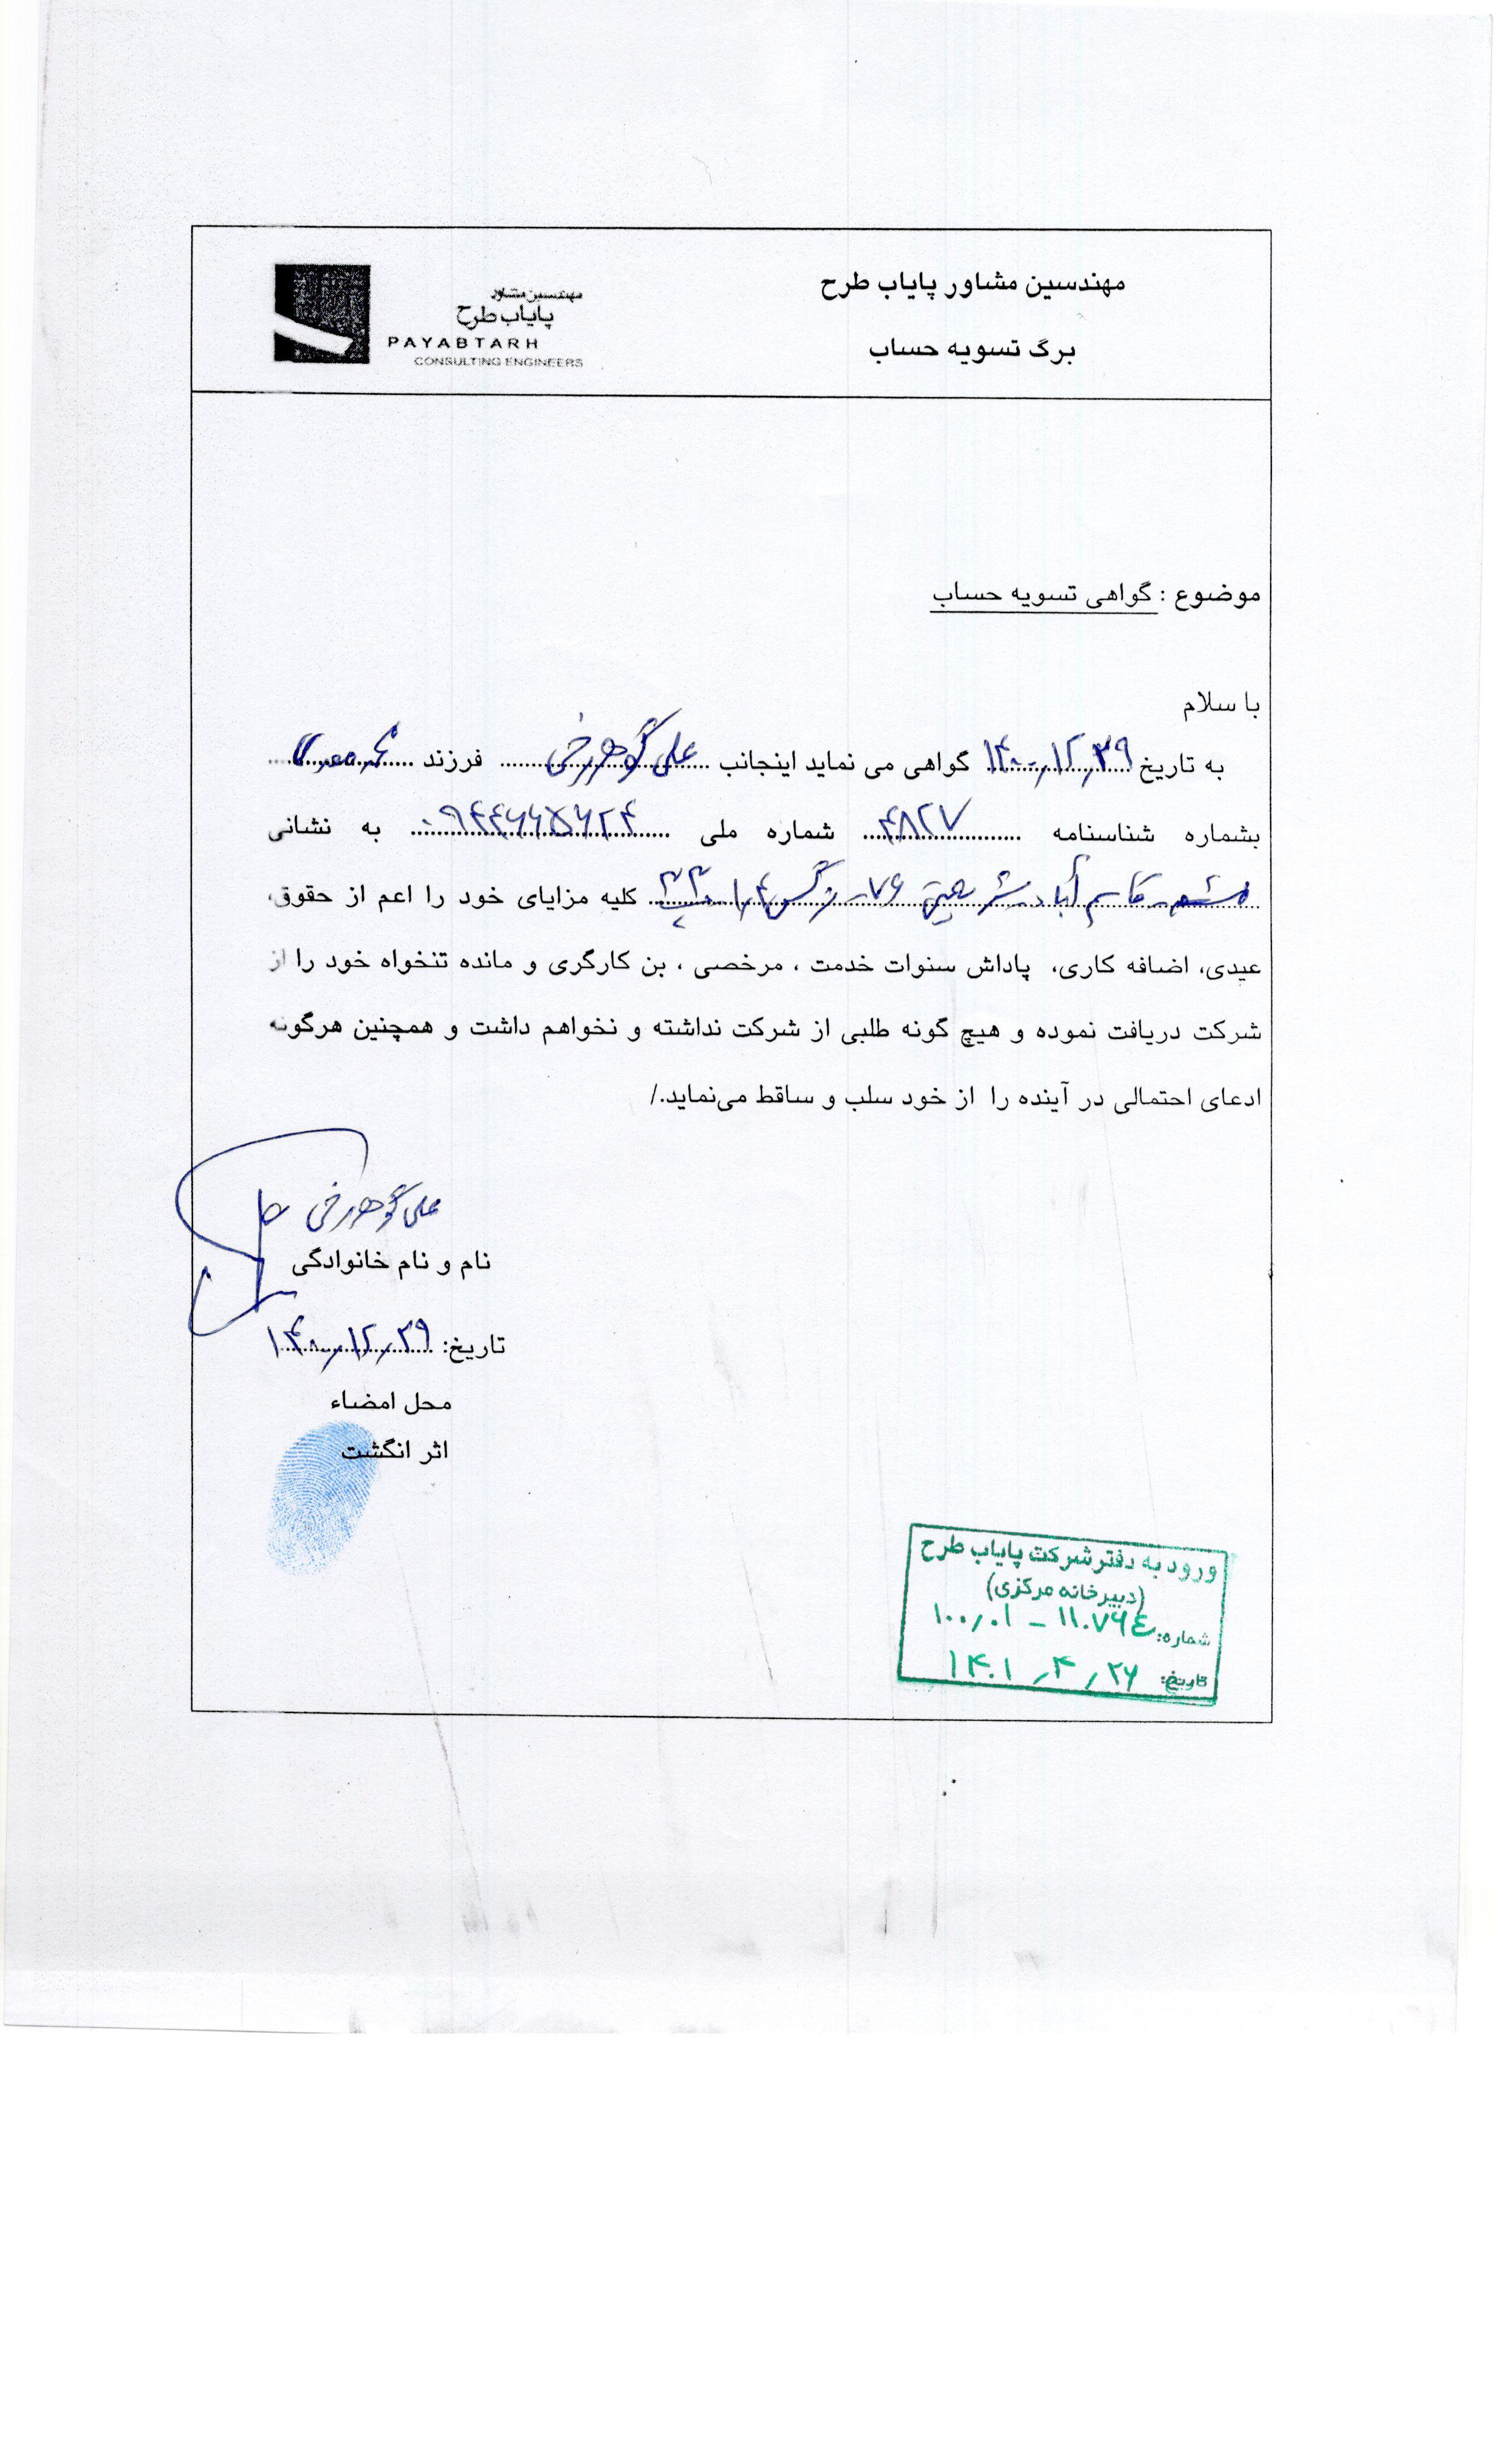 مهندسین مشاور پایاب طرح
برگ تسویه حساب
مهندسین مشاور
پایاب طرح
PAYABTARH
CONSULTING ENGINEERS
موضوع : گواهی تسویه حساب
با سلام
به تاریخ ۱۴۰۰/۱۲/۲۹ گواهی می نماید اینجانب علی گوهررخی فرزند
بشماره شناسنامه ۴۸۲۷ شماره ملی ۰۹۴۴۶۶۵۶۲۴ به نشانی
مشهد - قاسم آباد - شریعتی ۷۶ - نرگس ۱۰۴ - کلیه مزایای خود را اعم از حقوق،
عیدی، اضافه کاری، پاداش سنوات خدمت ، مرخصی ، بن کارگری و مانده تنخواه خود را از
شرکت دریافت نموده و هیچ گونه طلبی از شرکت نداشته و نخواهم داشت و همچنین هرگونه
ادعای احتمالی در آینده را از خود سلب و ساقط می‌نماید./
علی گوهررخی
نام و نام خانوادگی
تاریخ: ۱۴۰۰/۱۲/۲۹
محل امضاء
اثر انگشت
ورود به دفتر شرکت پایاب طرح
(دبیرخانه مرکزی)
شماره: ۱۱۰۷۶٤ - ۱۰۰/۰۱
تاریخ: ۱۴۰۱/۴/۲۶